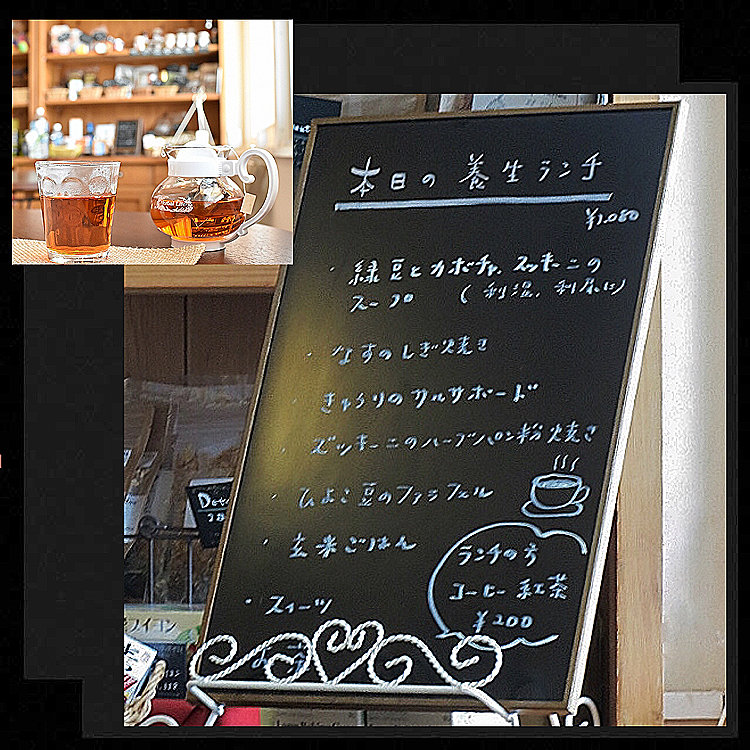 本日の養生ランチ
¥1,080
・緑豆とカボチャ、ズッキーニの
スープ (利湿、利尿に)
・なすのしぎ焼き
・きゅうりのサルサボード
・ズッキーニのハーブパン粉焼き
・ひよこ豆のファラフェル
・玄米ごはん
・スイーツ
ランチの方
コーヒー紅茶
¥200